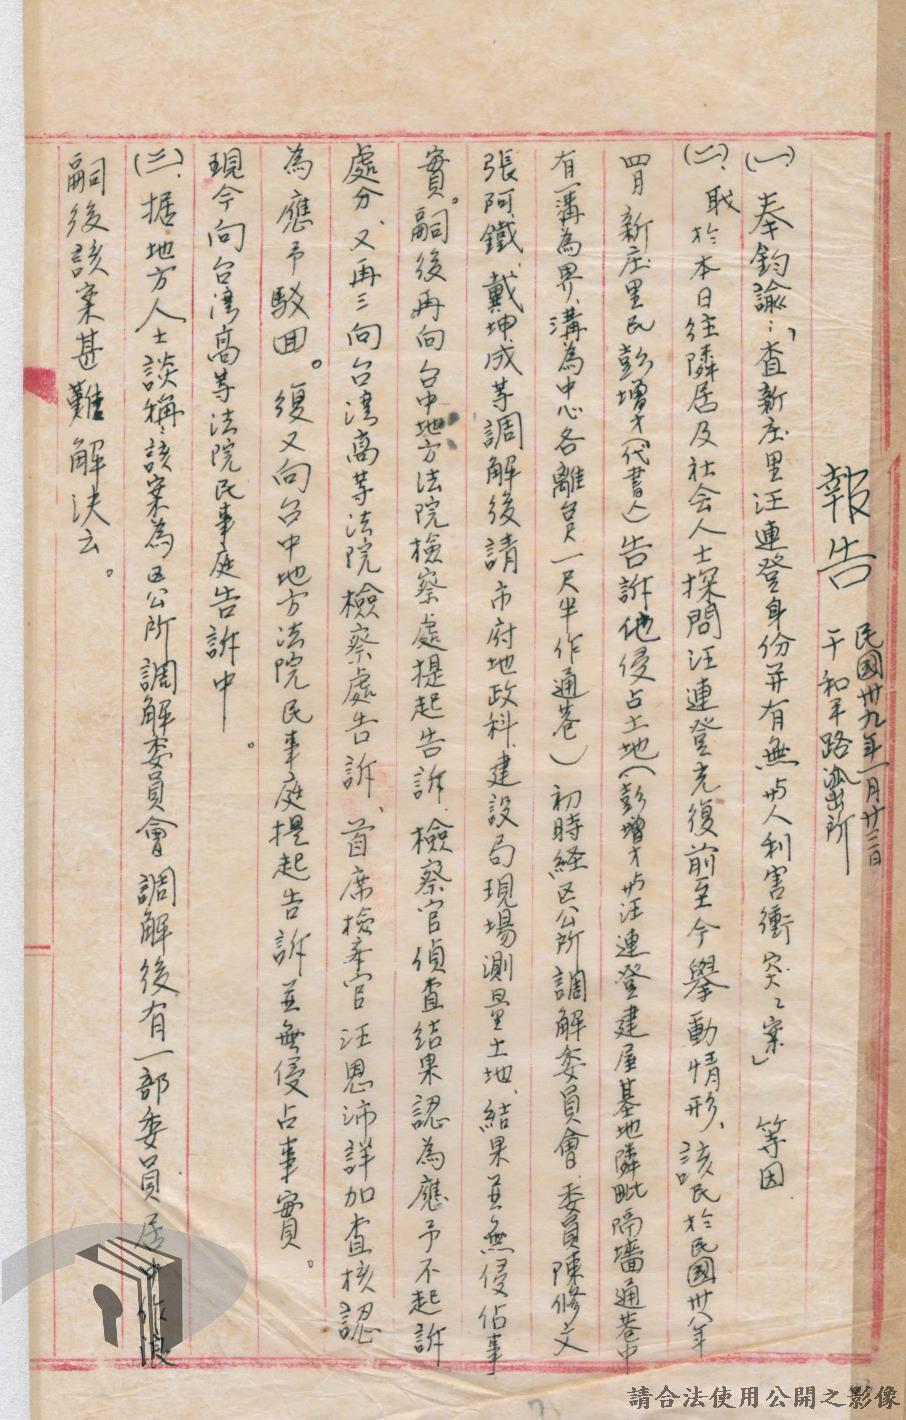 報告 民國卅九年一月廿三日
于和平路派出所
(一)奉鈞諭:「查新庄里汪連登身份并有無与人利害衝突之案」等因
(二)、職於本日往隣居及社会人士探問汪連登光復前至今舉動情形、該民於民國卅八年
四月新庄里民彭增才(代書人)告訴他侵占土地(彭增才与汪連登建屋基地隣毗隔墻通巷中
有一溝為界、溝為中心各離員一尺半作通巷)初時経区公所調解委員會委員陳修文
張阿鐵、戴坤成等調解後請市府地政科、建設局現場測量土地、結果并無侵佔事
實。嗣後再向台中地方法院檢察處提起告訴、檢察官偵查結果認為應予不起訴
處分、又再三向台湾高等法院檢察處告訴、首席檢查官汪恩沛詳加查核認
為應予駁回。復又向台中地方法院民事庭提起告訴並無侵占事實。
現今向台湾高等法院民事庭告訴中。
(三)、据地方人士談稱該案為区公所調解委員會調解後有一部委員居中作
嗣後該案甚難解決云。
請合法使用公開之影像